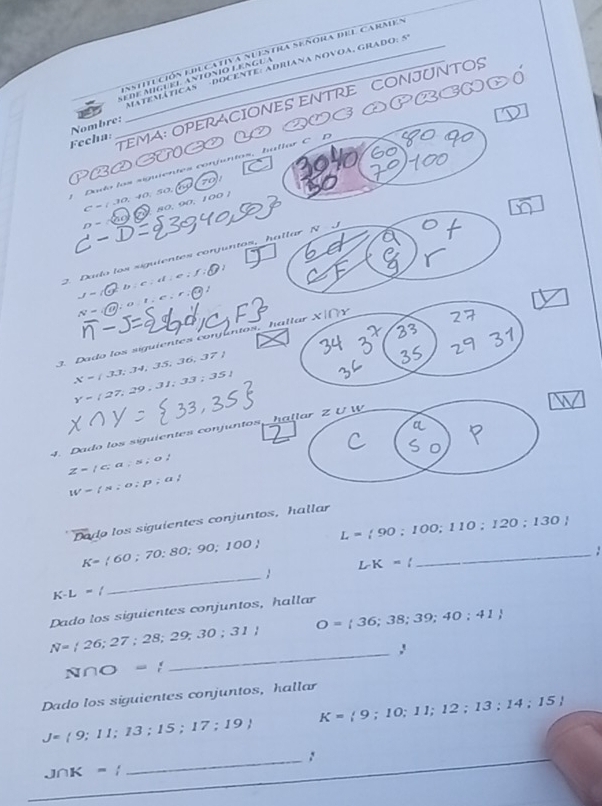 INSTITUCIÓN EDUCATIVA NUESTRA SEÑORA DEL CARMEN
SEDE MIGUEL ANTONIO LENGUA
MATEMÁTICAS DOCENTE: ADRIANA NOVOA, GRADO: 5°
Nombre:
Fecha:
TEMA: OPERACIONES ENTRE CONJUNTOS
1. Dado los siguientes conjuntos, hallar C - D
C = { 30, 40, 50, 60, 70 }
D = { 60, 70, 80, 90, 100 }
C - D = {30,40,50}
C D
30 40 50 60 70 80 90 100
2. Dado los siguientes conjuntos, hallar N - J
J = { a, b ; c ; d ; e ; f ; g }
N = { a ; o ; t ; e ; r ; g }
n̄ - J = {b,d,c,F}
J n̄
b d c F a e g o t r
3. Dado los siguientes conjuntos, hallar X ∩ Y
X = { 33, 34, 35, 36, 37 }
Y = { 27, 29 ; 31 ; 33 ; 35 }
X ∩ Y = {33,35}
X Y
34 37 36 33 35 27 29 31
4. Dado los siguientes conjuntos, hallar Z U W
Z = { c, a ; s ; o }
W = { s ; o ; p ; a }
Z W
c a s o p
Dado los siguientes conjuntos, hallar
K= { 60 ; 70; 80; 90; 100 } L = { 90 ; 100; 110 ; 120 ; 130 }
K-L = { } L-K = { }
Dado los siguientes conjuntos, hallar
Ñ= { 26; 27 ; 28; 29; 30 ; 31 } O = { 36; 38; 39; 40 ; 41 }
Ñ∩O = { }
Dado los siguientes conjuntos, hallar
J= { 9; 11; 13 ; 15 ; 17 ; 19 } K = { 9 ; 10; 11; 12 ; 13 ; 14 ; 15 }
J∩K = { }